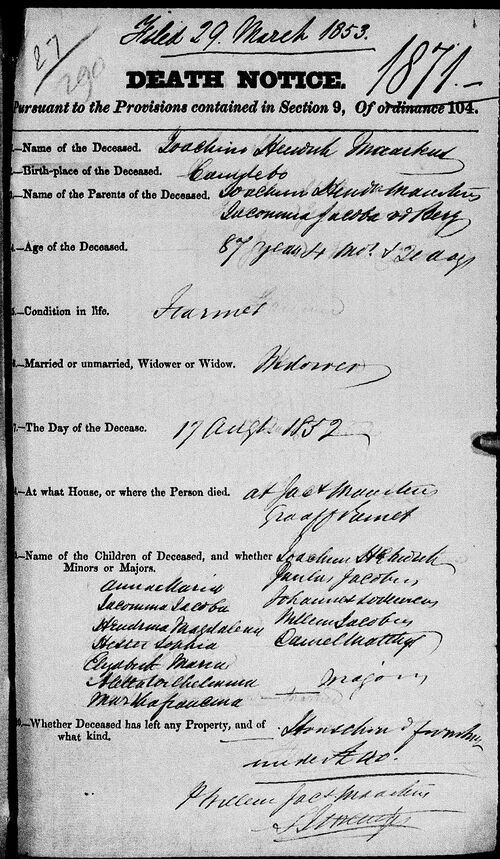 Filed 29. March 1853.
27
290
1871
DEATH NOTICE.
Pursuant to the Provisions contained in Section 9, Of ordinance 104.
1.—Name of the Deceased. Joachim Hendrik Maartens
2.—Birth-place of the Deceased. Camdebo
3.—Name of the Parents of the Deceased. Joachim Hendk Maartens
Jacomina Jacoba vd Berg
4.—Age of the Deceased. 87 years 4 Mos. & 20 days
5.—Condition in life. Farmer
6.—Married or unmarried, Widower or Widow. Widower
7.—The Day of the Decease. 17 Augt 1852
8.—At what House, or where the Person died. at Jac Maartens
Graaff Reinet
9.—Name of the Children of Deceased, and whether Joachim Hendrik
Minors or Majors. Paulus Jacobus
Anna Maria Johannes
Jacomina Jacoba Willem Jacobus
Hendrina Magdalena Daniel Matthys
Hester Sophia
Elizabeth Maria
Aletta Wilhelmina Majors
Martha Francina
10.—Whether Deceased has left any Property, and of
what kind.
under £20.
Willem Jac Maartens